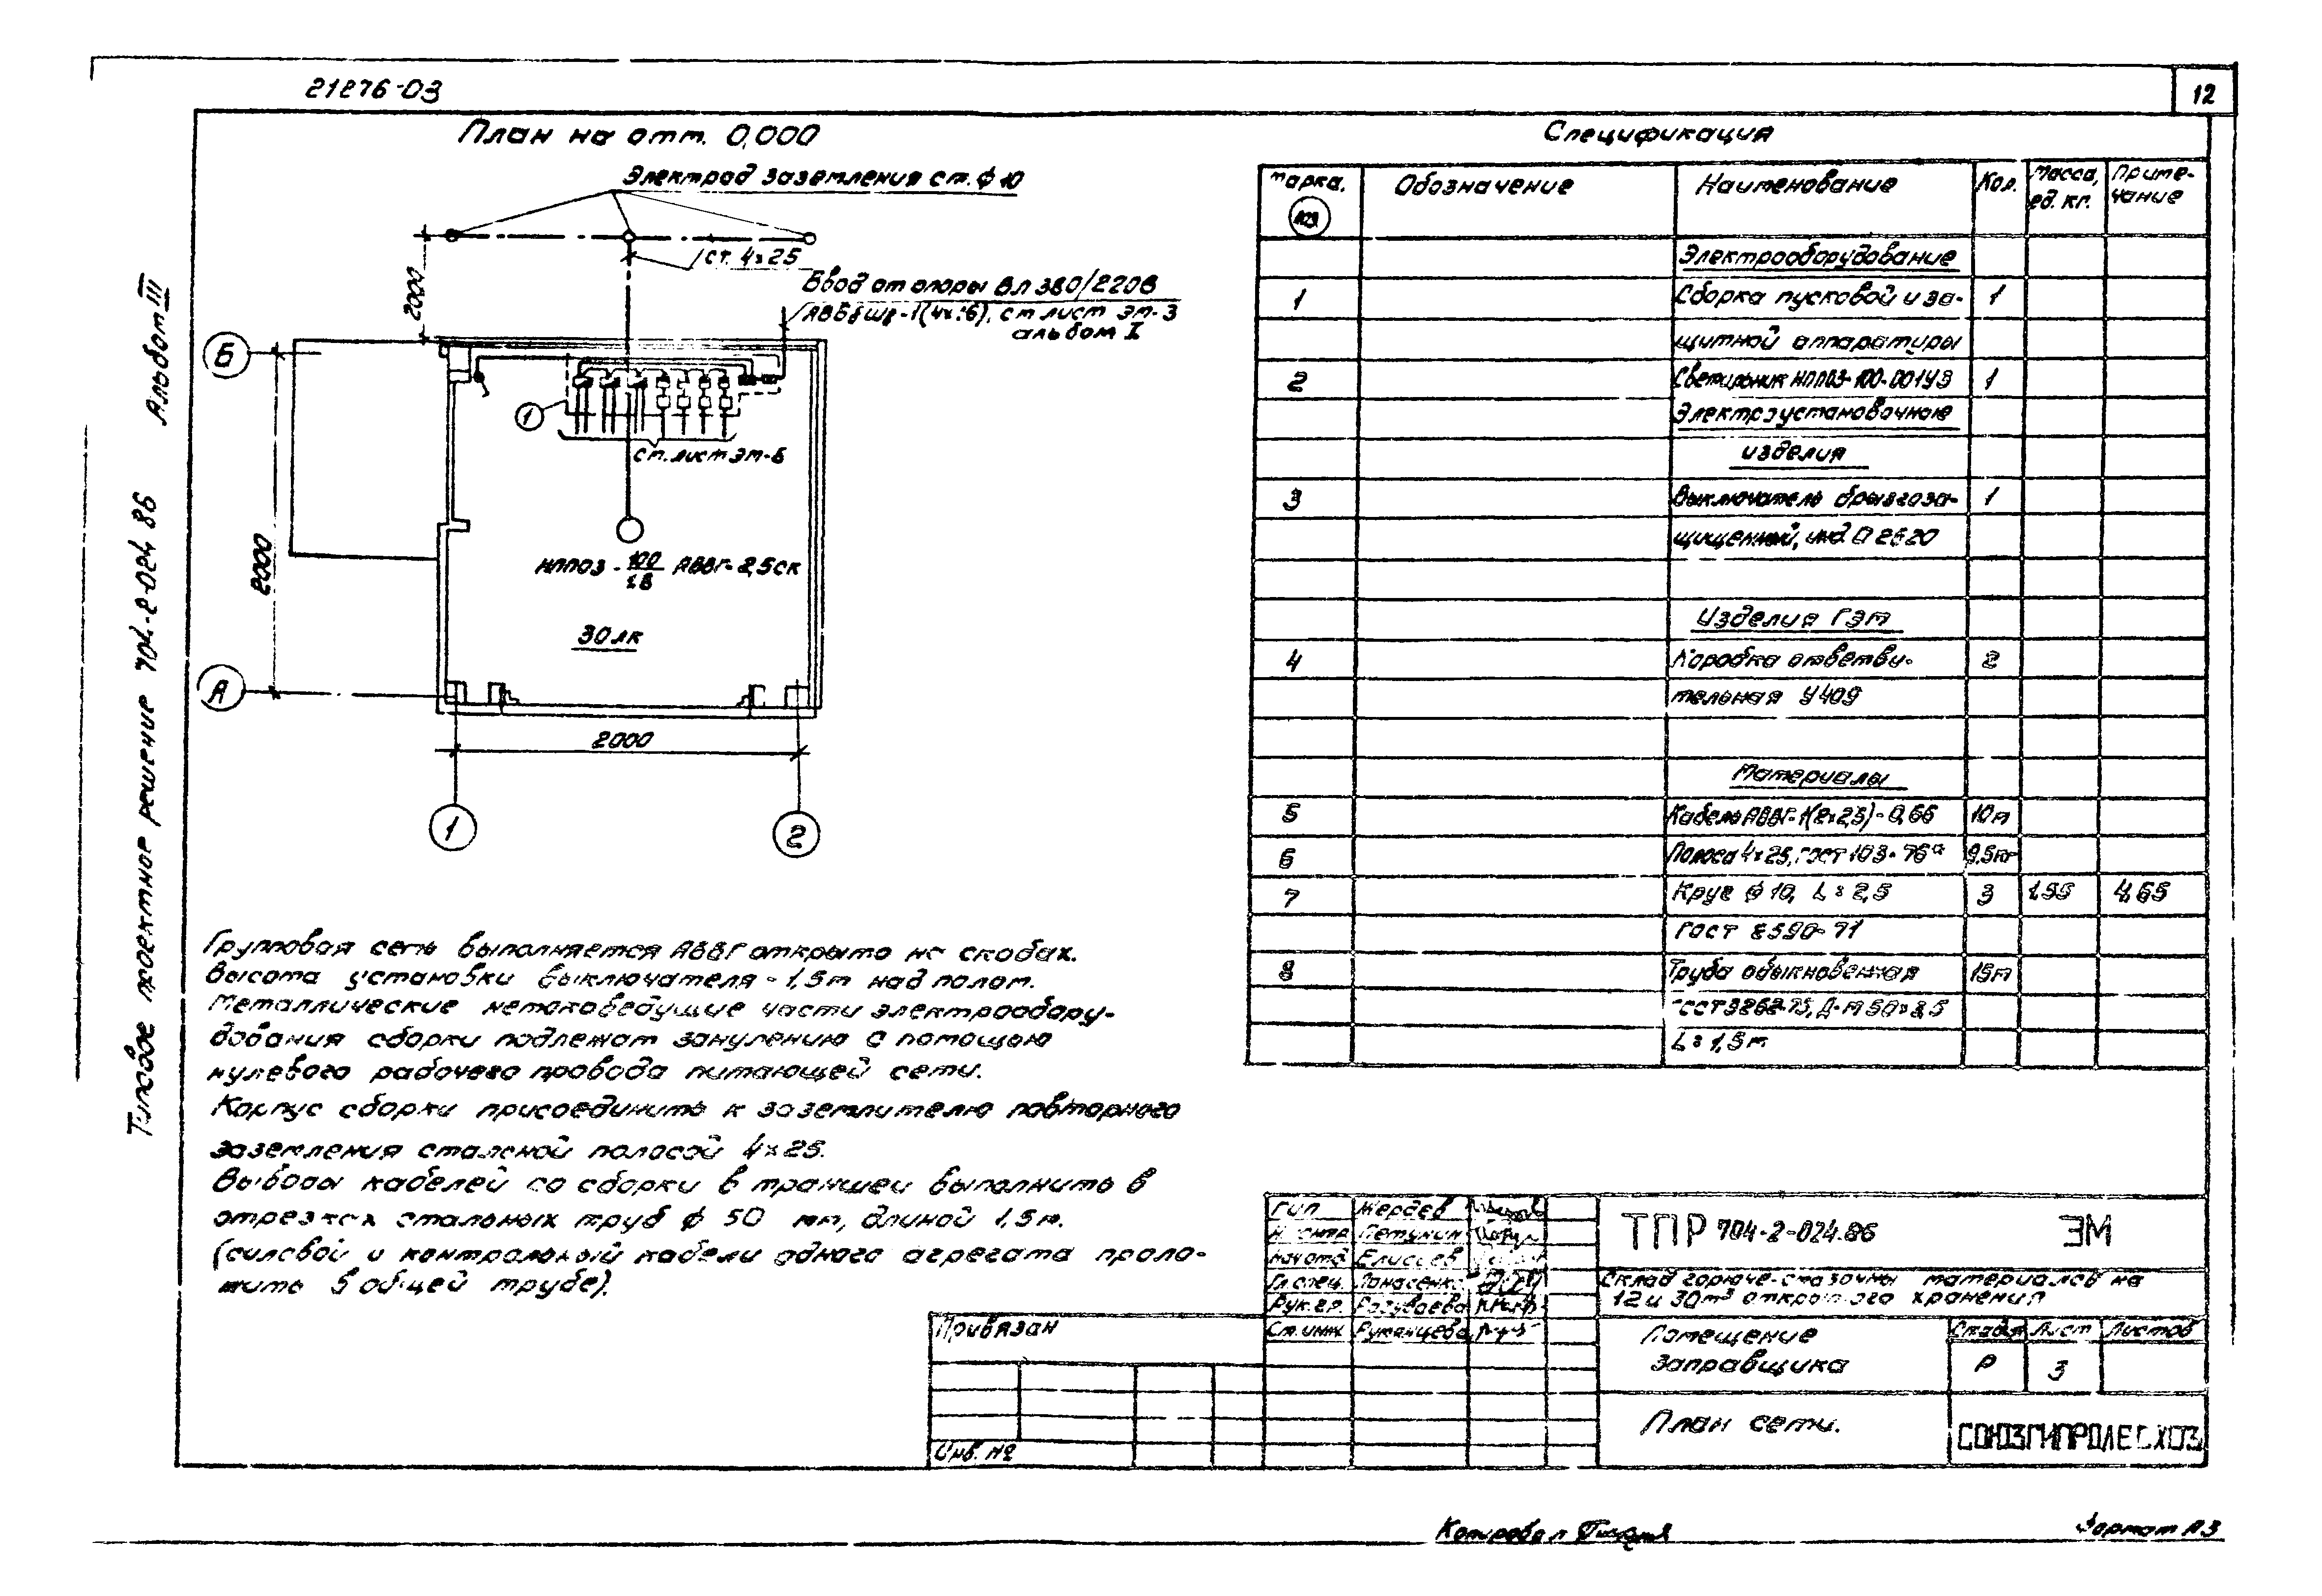 21876-03
12
Альбом III
Типовое проектное решение 704-2-024.86
План на отм. 0,000
Электрод заземления ст. ф 10
ст. 4×25
2000
Ввод от опоры ВЛ 380/220В
см лист ЭМ-3
альбом I
Б
1
см. лист ЭМ-6
2000
НПП03 - 100 АВВГ-2,5 ск
30 лк
А
2000
1
2
Групповая сеть выполняется АВВГ открыто на скобах.
Высота установки выключателя - 1,5м над полом.
Металлические нетоковедущие части электрообору-
дования сборки подлежат занулению с помощью
нулевого рабочего провода питающей сети.
Корпус сборки присоединить к заземлителю повторного
заземления стальной полосой 4×25.
Выводы кабелей со сборки в траншеи выполнить в
отрезках стальных труб ф 50 мм, длиной 1,5м.
(силовой и контрольный кабели одного агрегата проло-
жить в общей трубе).
Спецификация
Марка, поз Обозначение Наименование Кол. Масса, ед. кг. Приме-
чание
Электрооборудование
1 Сборка пусковой и за- 1
щитной аппаратуры
2 Светильник НПП03-100-001У3 1
Электроустановочные
изделия
3 Выключатель брызгоза- 1
щищенный, инд 02620
Изделия ГЭМ
4 Коробка ответви- 2
тельная У409
Материалы
5 Кабель АВВГ-1(2×2,5)-0,66 10м
6 Полоса 4×25, гост 103-76 9,5м
7 Круг ф 10, L=2,5 3 1,55 4,65
гост 2590-71
8 Труба обыкновенная 15м
гост 3262-75, Д-М 50×3,5
L=1,5м
Гип Жердев
Н. контр Петунин
нач отд Елисеев
Гл. спец. Панасенко
Рук. гр. Разуваева
Ст. инж Румянцева
ТПР 704-2-024.86 ЭМ
Склад горюче-смазочны материалов на
12 и 30м³ открытого хранения
Помещение
заправщика
Стадия Лист Листов
Р 3
План сети.
СОЮЗГИПРОЛЕСХОЗ
Привязан
Инв. №
Копировал
Формат А3